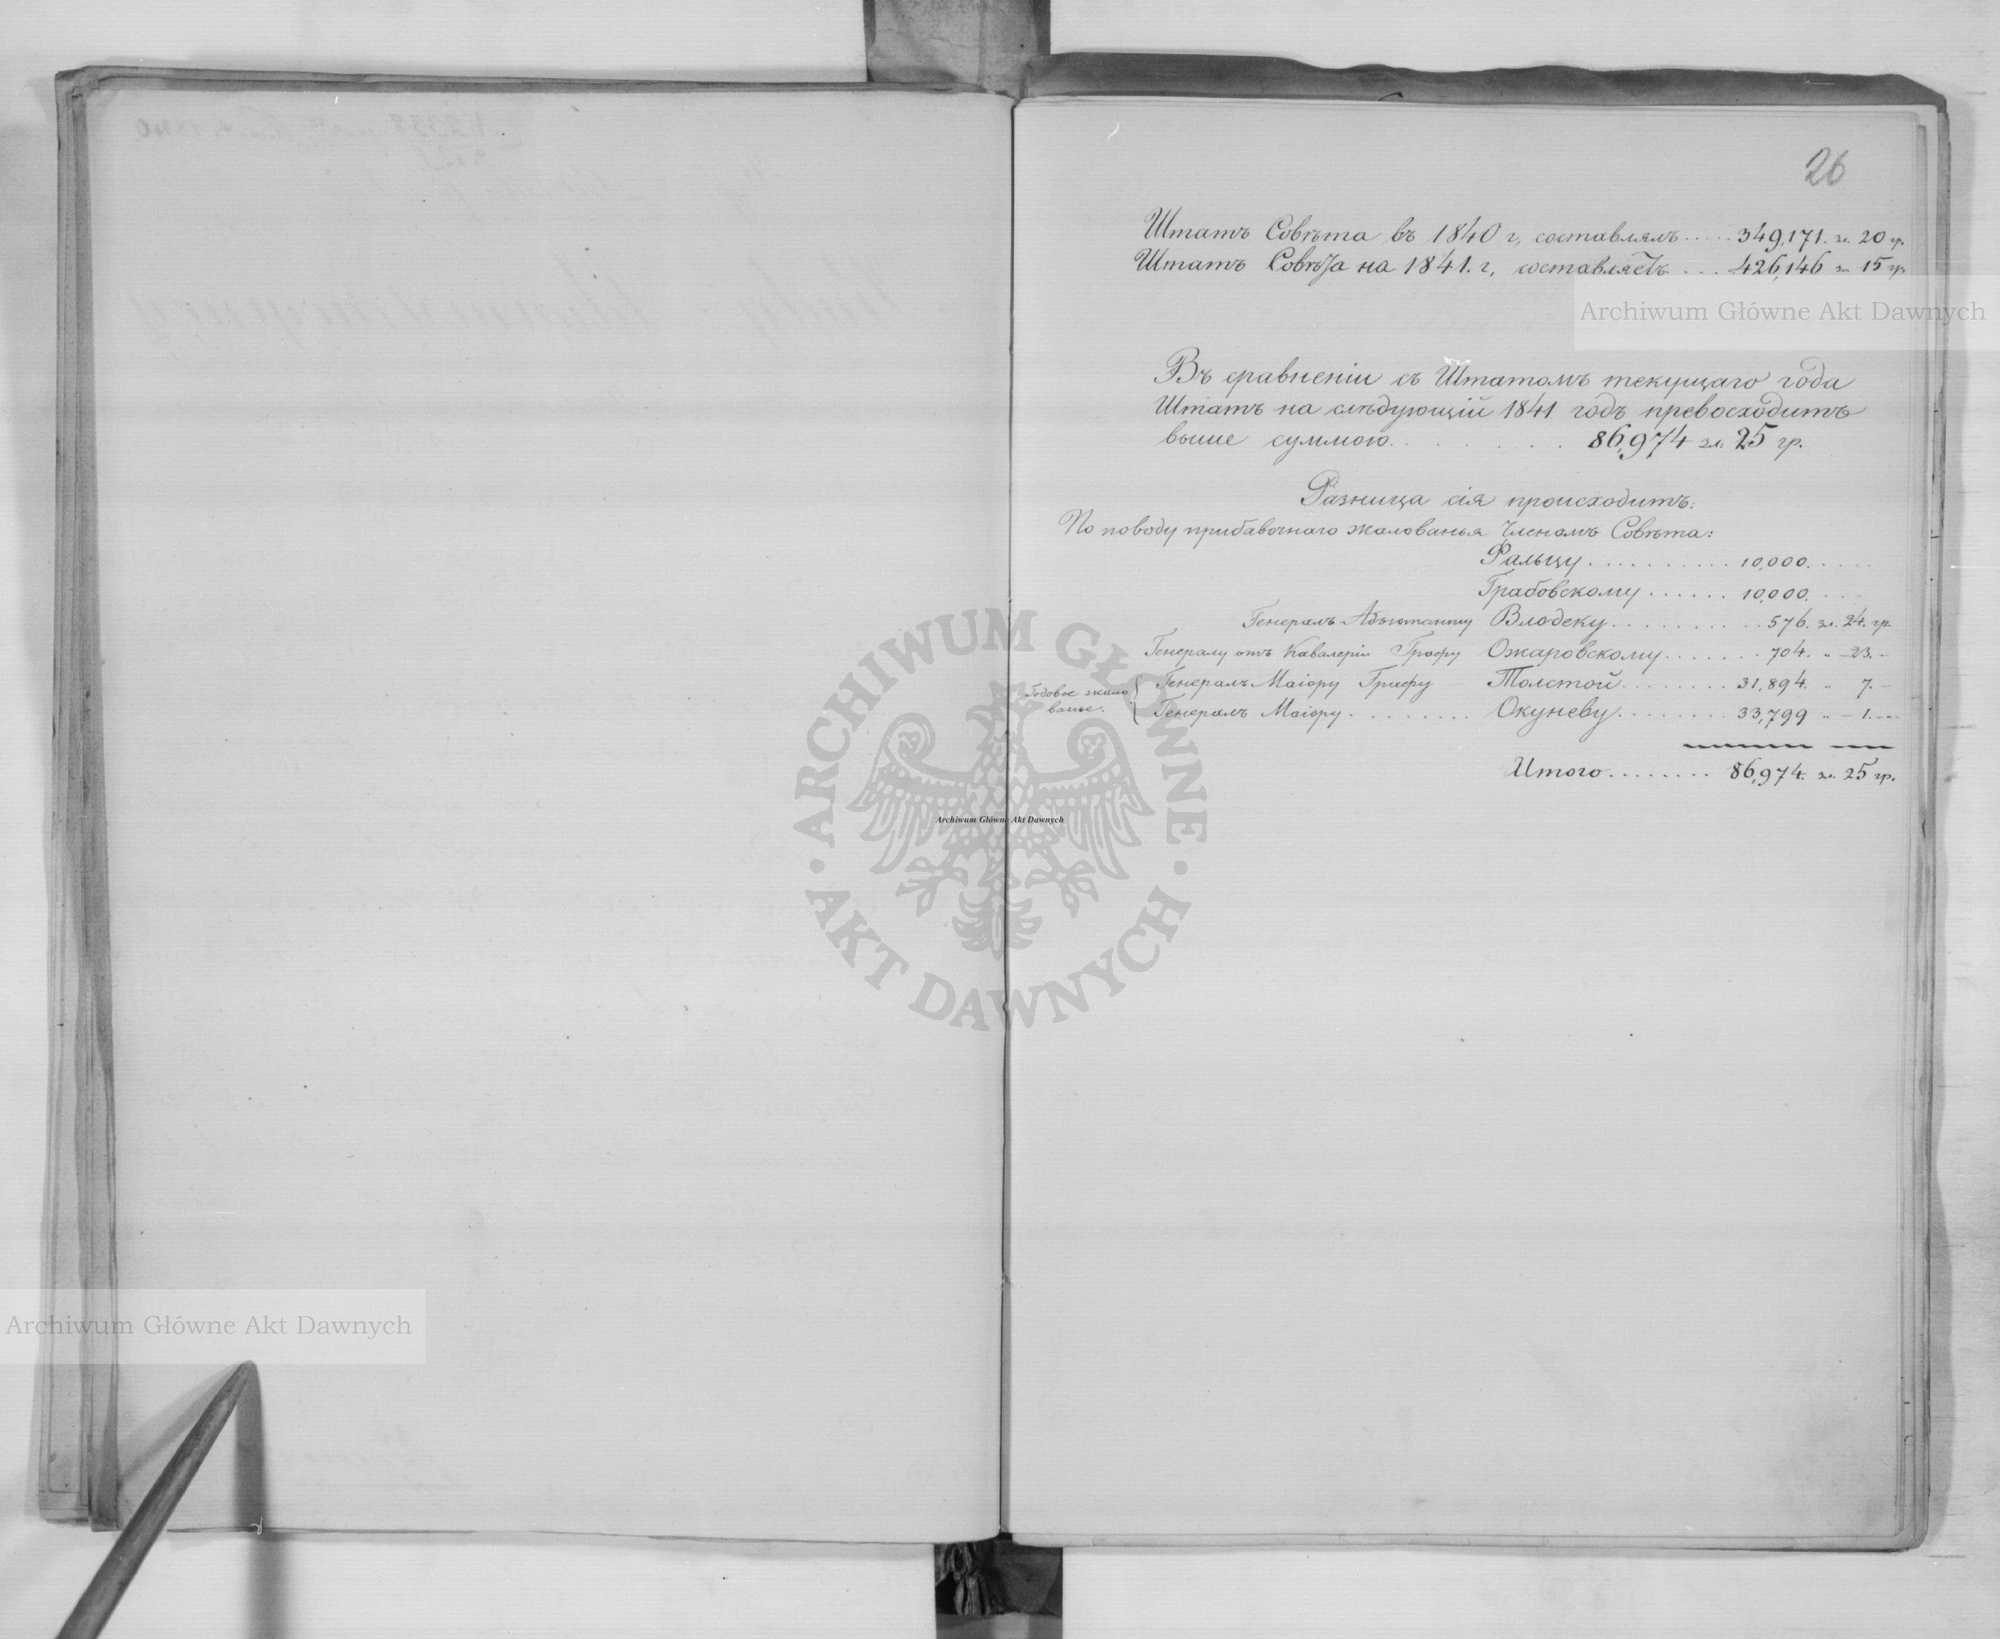 26
Штатъ Совѣта въ 1840 г, составлялъ ..... 349,171. зл. 20 гр.
Штатъ Совѣта на 1841. г, составляетъ ... 426,146 зл. 15 гр
Archiwum Główne Akt Dawnych
Въ сравненіи съ Штатомъ текущаго года
Штатъ на слѣдующій 1841 годъ превосходитъ
выше суммою. . . . . . . . 86,974 зл. 25 гр.
Разница сія происходитъ:
По поводу прибавочнаго жалованья Членамъ Совѣта:
Фальцу . . . . . . . . . . 10,000. . . . .
Грабовскому . . . . . . 10,000. . . . .
Генералъ-Адъютанту Влодеку. . . . . . . . . . . 576. зл. 24. гр.
Генералу отъ Кавалеріи Графу Ожаровскому. . . . . . . 704. „ — 23. —
Годовое жало
ванье.
Генералъ Маіору Графу Толстой. . . . . . . . 31,894. „ 7. —
Генералъ Маіору. . . . . . . . Окуневу. . . . . . . . 33,799 „ — 1. —
Итого. . . . . . . . 86,974. зл. 25 гр.
ARCHIWUM GŁÓWNE
Archiwum Główne Akt Dawnych
· AKT DAWNYCH ·
Archiwum Główne Akt Dawnych